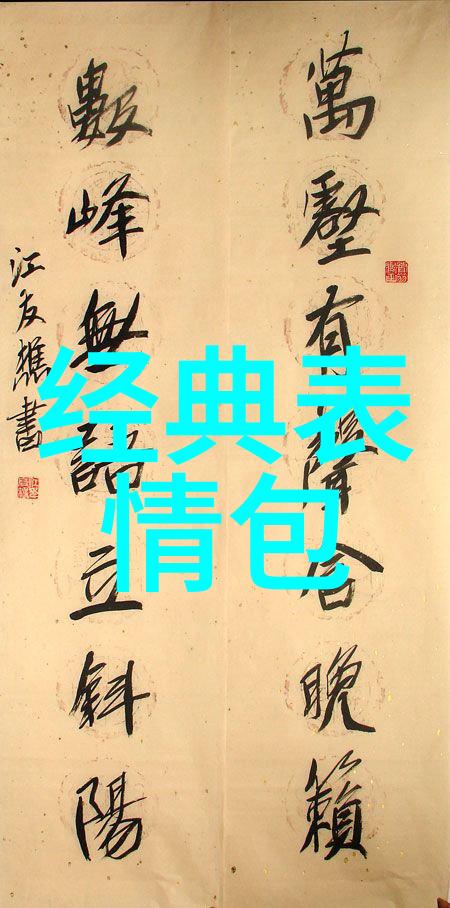 萬壑有含晚籟
數峰無語立斜陽
江友樵書
经典表
情包